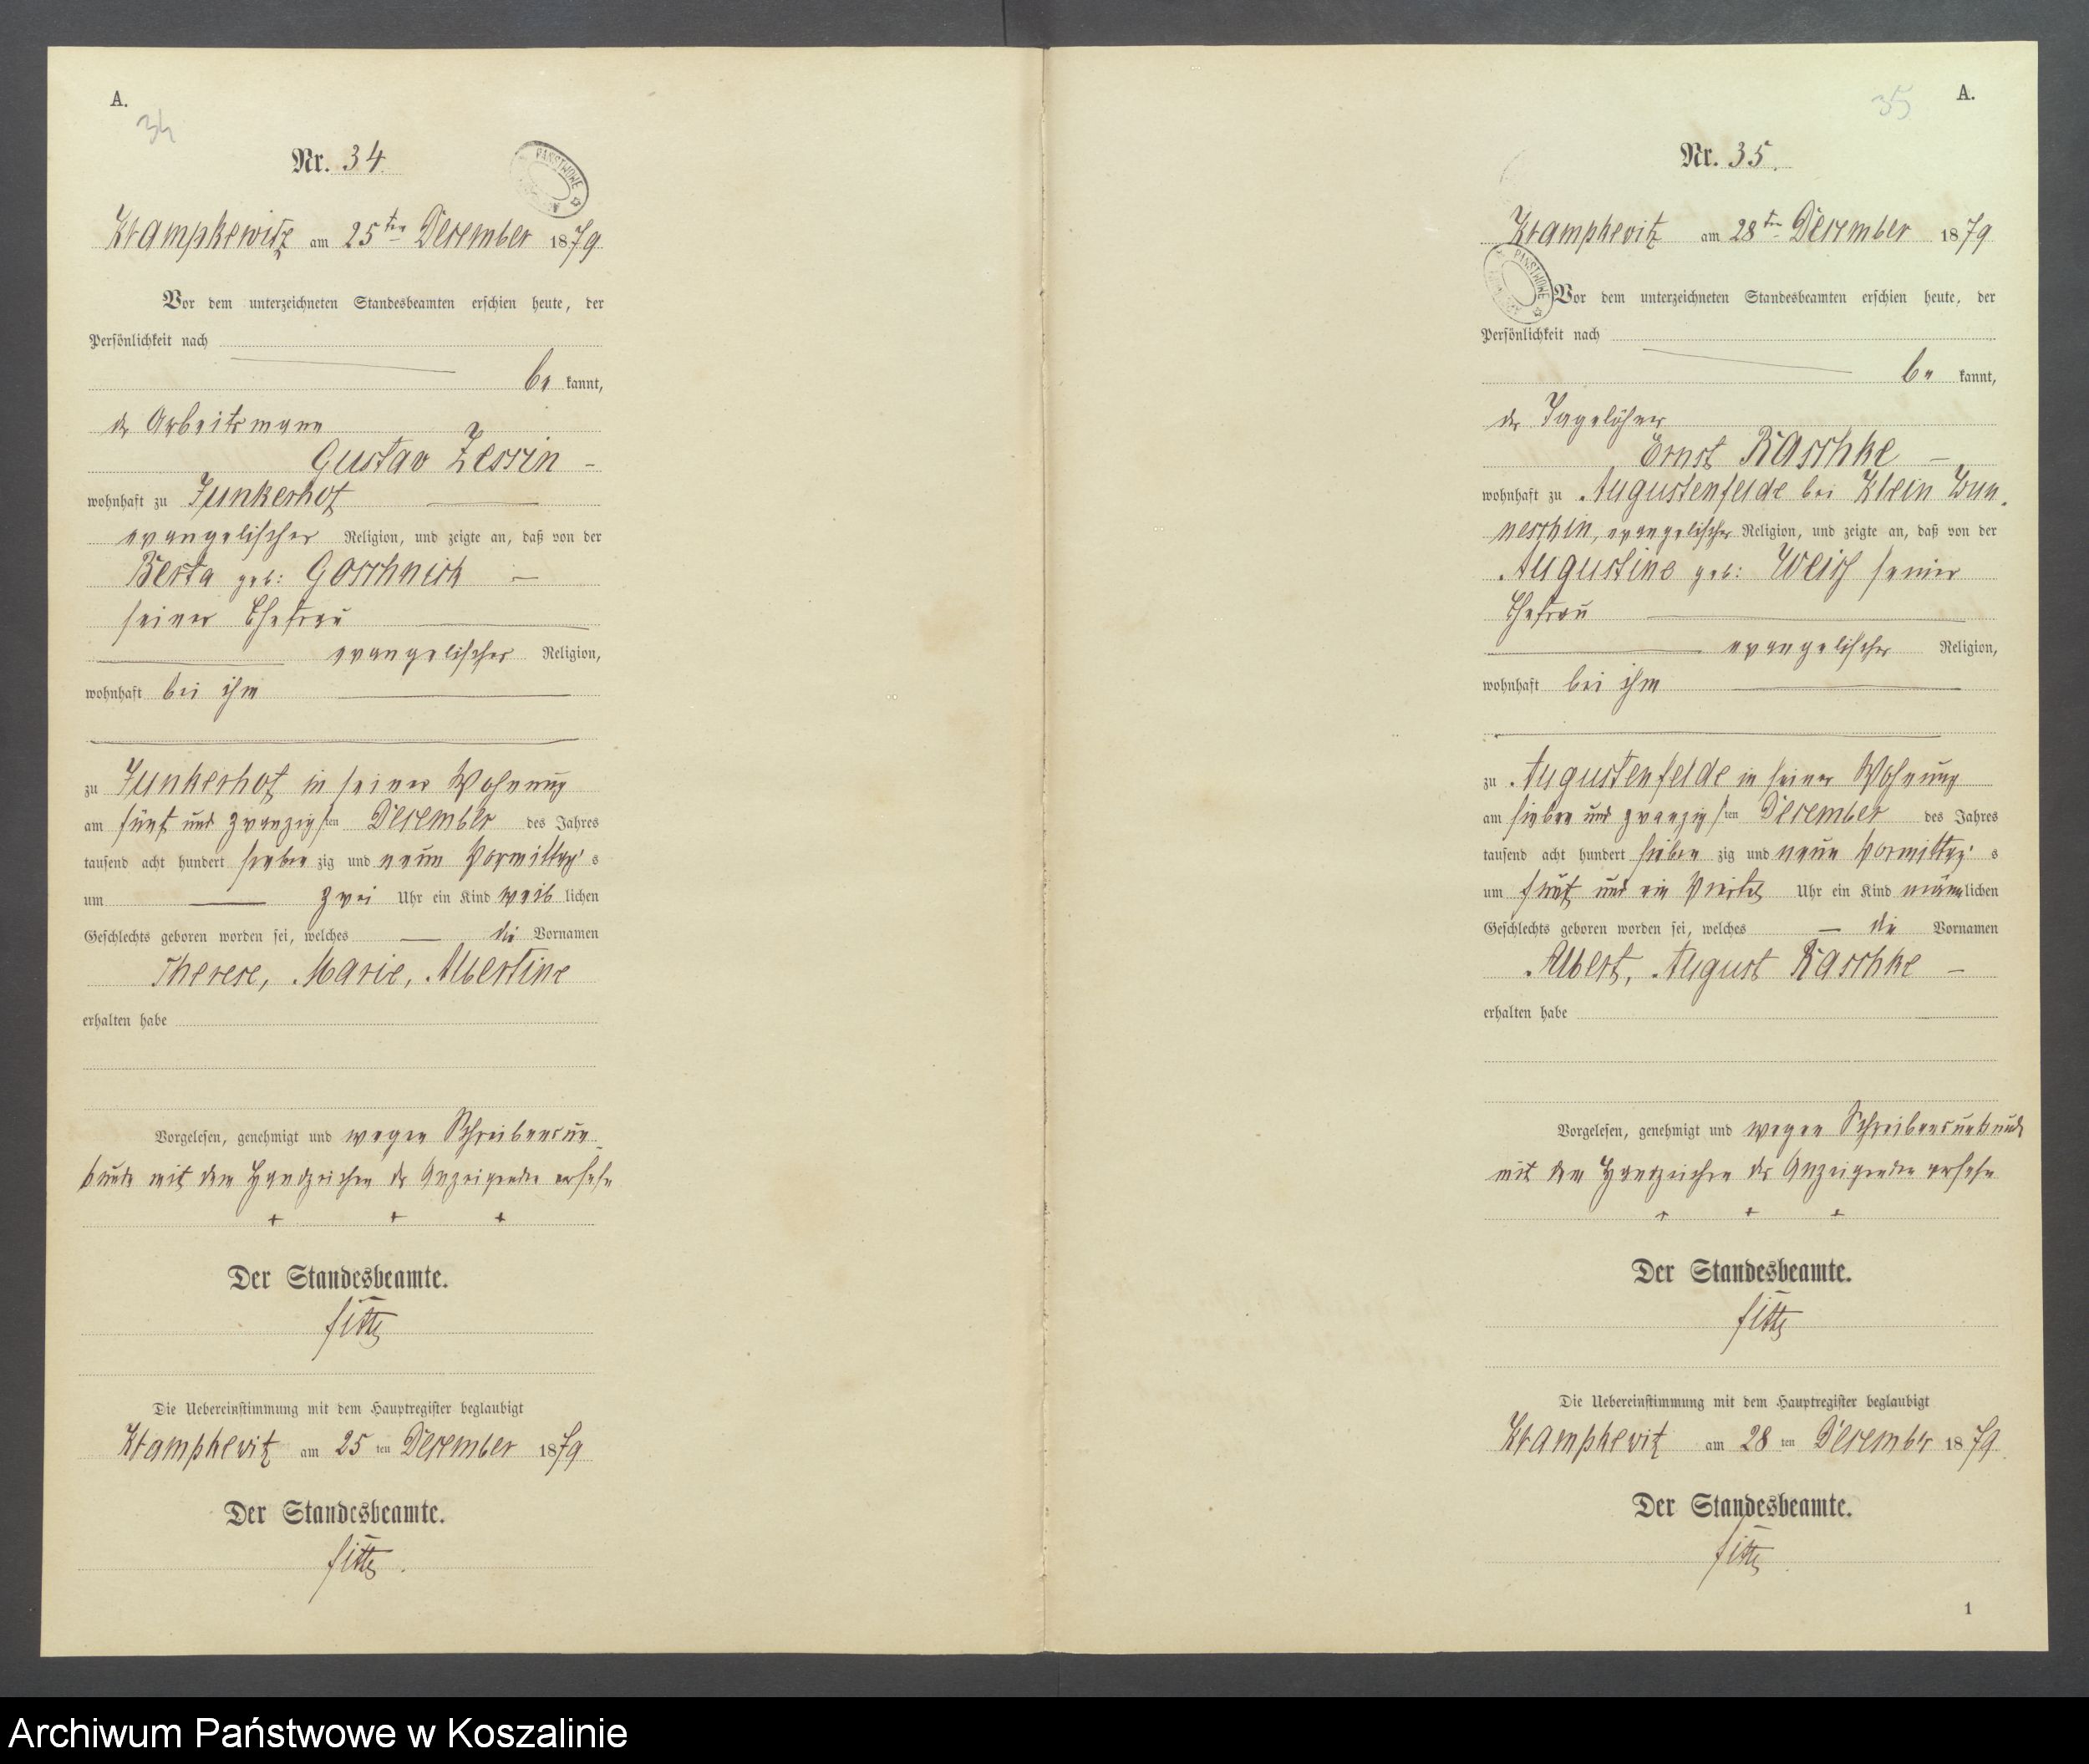 A.
34
Nr. 34.
PAŃSTWOWE
Krampkewitz am 25ten December 1879
Vor dem unterzeichneten Standesbeamten erschien heute, der
Persönlichkeit nach
be kannt,
der Arbeitsmann
Gustav Zessin
wohnhaft zu Junkerhof
evangelischer Religion, und zeigte an, daß von der
Berta geb: Goschnick
seiner Ehefrau
evangelischer Religion,
wohnhaft bei ihm
zu Junkerhof in seiner Wohnung
am fünf und zwanzigsten December des Jahres
tausend acht hundert sieben zig und neun Vormittag's
um zwei Uhr ein Kind weib lichen
Geschlechts geboren worden sei, welches die Vornamen
Therese, Marie, Albertine
erhalten habe
Vorgelesen, genehmigt und wegen Schreibensun-
kunde mit dem Handzeichen des Anzeigenden versehn
+ + +
Der Standesbeamte.
Die Uebereinstimmung mit dem Hauptregister beglaubigt
Krampkewitz am 25 ten December 1879
Der Standesbeamte.
A.
35
Nr. 35.
Krampkevitz am 28ten December 1879
PAŃSTWOWE
Vor dem unterzeichneten Standesbeamten erschien heute, der
Persönlichkeit nach
be kannt,
der Tagelöhner
Ernst Raschke
wohnhaft zu Augustenfelde bei Klein Wun-
neschin, evangelischer Religion, und zeigte an, daß von der
Augustine geb: seiner
Ehefrau
evangelischer Religion,
wohnhaft bei ihm
zu Augustenfelde in seiner Wohnung
am sieben und zwanzigsten December des Jahres
tausend acht hundert sieben zig und neun Vormittag's
um fünf und ein Viertel Uhr ein Kind männlichen
Geschlechts geboren worden sei, welches die Vornamen
Albert, August Raschke
erhalten habe
Vorgelesen, genehmigt und wegen Schreibensunkunde
mit dem Handzeichen des Anzeigenden versehn
+ + +
Der Standesbeamte.
Die Uebereinstimmung mit dem Hauptregister beglaubigt
Krampkevitz am 28 ten December 1879.
Der Standesbeamte.
1
Archiwum Państwowe w Koszalinie